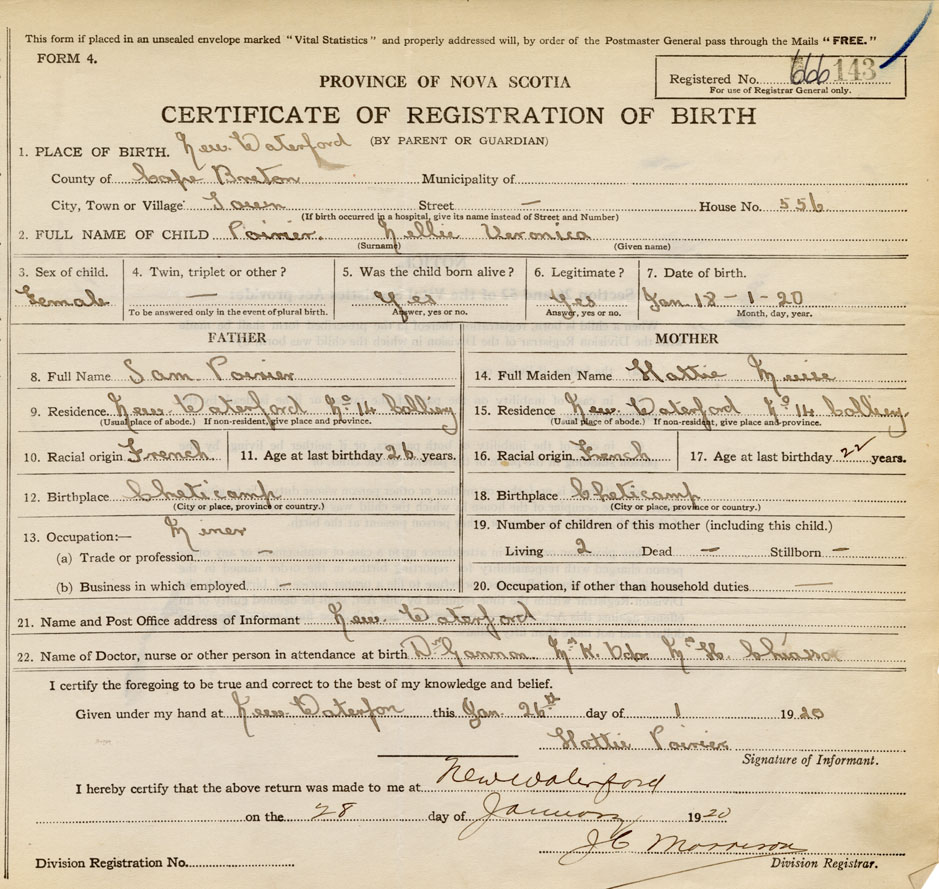 This form if placed in an unsealed envelope marked "Vital Statistics" and properly addressed will, by order of the Postmaster General pass through the Mails "FREE."
FORM 4.
PROVINCE OF NOVA SCOTIA
Registered No. 666 143
For use of Registrar General only.
CERTIFICATE OF REGISTRATION OF BIRTH
(BY PARENT OR GUARDIAN)
1. PLACE OF BIRTH. New Waterford
County of Cape Breton Municipality of
City, Town or Village Town Street — House No. 556
(If birth occurred in a hospital, give its name instead of Street and Number)
2. FULL NAME OF CHILD Poirier. Nellie Veronica
(Surname) (Given name)
3. Sex of child. 4. Twin, triplet or other? 5. Was the child born alive? 6. Legitimate? 7. Date of birth.
Female — Yes Yes Jan 18 - 1 - 20
To be answered only in the event of plural birth. Answer, yes or no. Answer, yes or no. Month, day, year.
FATHER
8. Full Name Sam Poirier
9. Residence. New Waterford No 14 Colliery
(Usual place of abode.) If non-resident, give place and province.
10. Racial origin French 11. Age at last birthday 26 years.
12. Birthplace Cheticamp
(City or place, province or country.)
13. Occupation:— Miner
(a) Trade or profession —
(b) Business in which employed —
MOTHER
14. Full Maiden Name Hattie
15. Residence New Waterford No 14 Colliery.
(Usual place of abode.) If non-resident, give place and province.
16. Racial origin French 17. Age at last birthday 22 years.
18. Birthplace Cheticamp
(City or place, province or country.)
19. Number of children of this mother (including this child.)
Living 2 Dead — Stillborn —
20. Occupation, if other than household duties —
21. Name and Post Office address of Informant New Waterford
22. Name of Doctor, nurse or other person in attendance at birth Dr Mrs K. Mrs H.
I certify the foregoing to be true and correct to the best of my knowledge and belief.
Given under my hand at New Waterfon this Jan. 26 day of 1 1920
Hattie Poirier
Signature of Informant.
I hereby certify that the above return was made to me at New Waterford
on the 28 day of January 1920
J C Morrison
Division Registration No. Division Registrar.